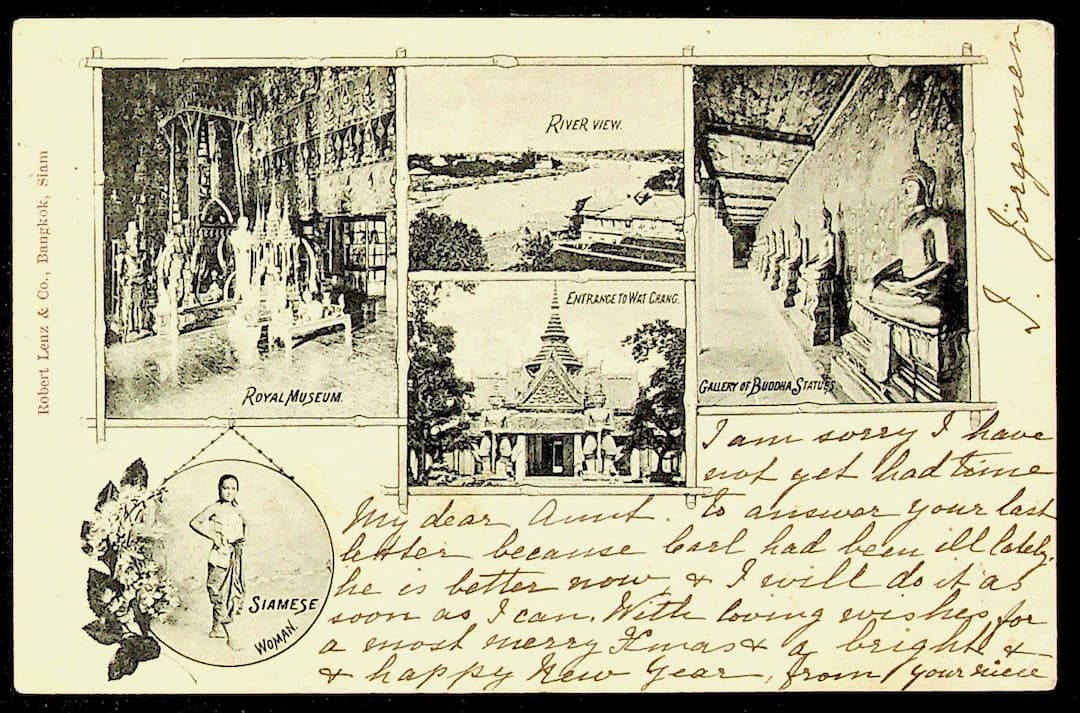 Robert Lenz & Co., Bangkok, Siam
RIVER VIEW.
ENTRANCE TO WAT CHANG.
ROYAL MUSEUM.
GALLERY OF BUDDHA STATUES.
SIAMESE
WOMAN.
My dear Aunt. I am sorry I have
not yet had time
to answer your last
letter because Carl had been ill lately,
he is better now & I will do it as
soon as I can. With loving wishes for
a most merry Xmas & a bright &
& happy New Year, from your niece
I. Jörgensen